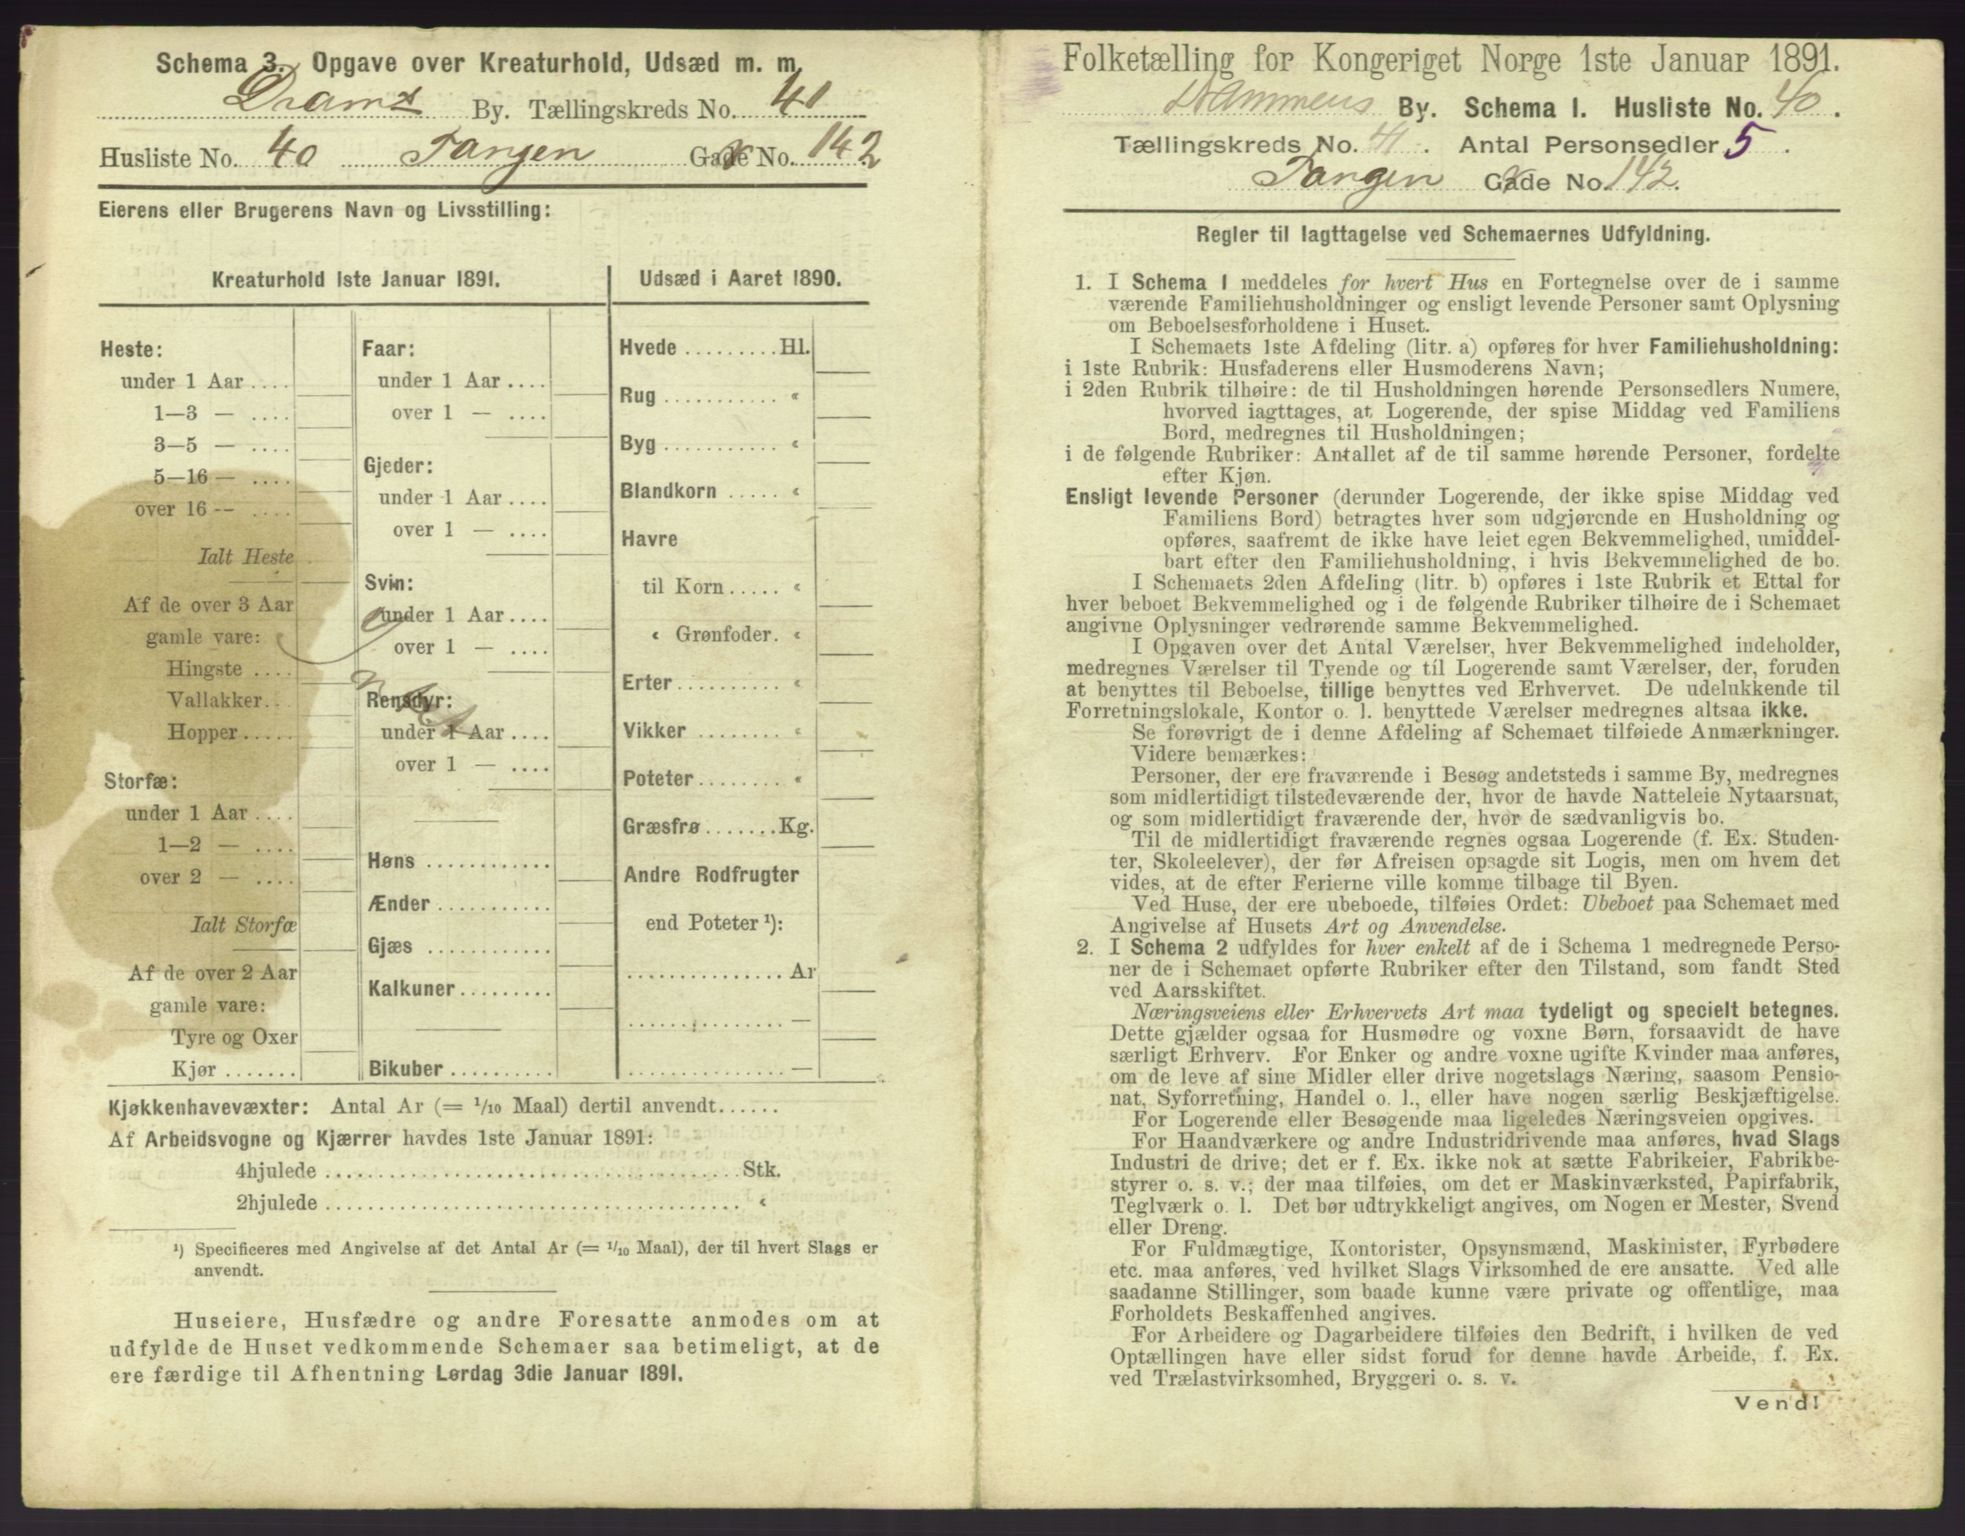 Schema 3. Opgave over Kreaturhold, Udsæd m. m.
Drams By. Tællingskreds No. 41
Husliste No. 40 Tangen Gade No. 142
Eierens eller Brugerens Navn og Livsstilling:
Kreaturhold 1ste Januar 1891.
Heste:
under 1 Aar....
1—3 — ....
3—5 — ....
5—16 — ....
over 16 — ....
Ialt Heste
Af de over 3 Aar
gamle vare:
Hingste ....
Vallakker...
Hopper.....
Storfæ:
under 1 Aar....
1—2 — ....
over 2 — ....
Ialt Storfæ
Af de over 2 Aar
gamle vare:
Tyre og Oxer
Kjør .......
Faar:
under 1 Aar....
over 1 — ....
Gjeder:
under 1 Aar....
over 1 — ....
Svin:
under 1 Aar....
over 1 — ....
Rensdyr:
under 1 Aar....
over 1 — ....
Høns ............
Ænder...........
Gjæs ............
Kalkuner.........
Bikuber ..........
Udsæd i Aaret 1890.
Hvede .........Hl.
Rug ........... «
Byg ........... «
Blandkorn ..... «
Havre
til Korn..... «
« Grønfoder. «
Erter.......... «
Vikker ........ «
Poteter........ «
Græsfrø.......Kg.
Andre Rodfrugter
end Poteter ¹):
...............Ar
............... —
...............—
Kjøkkenhavevæxter: Antal Ar (= 1/10 Maal) dertil anvendt......
Af Arbeidsvogne og Kjærrer havdes 1ste Januar 1891:
4hjulede ........................................Stk.
2hjulede ........................................ «
¹) Specificeres med Angivelse af det Antal Ar (= 1/10 Maal), der til hvert Slags er
anvendt.
Huseiere, Husfædre og andre Foresatte anmodes om at
udfylde de Huset vedkommende Schemaer saa betimeligt, at de
ere færdige til Afhentning Lørdag 3die Januar 1891.
Folketælling for Kongeriget Norge 1ste Januar 1891.
Drammens By. Schema 1. Husliste No. 40.
Tællingskreds No. 41. Antal Personsedler 5.
Tangen Gade No. 142.
Regler til Iagttagelse ved Schemaernes Udfyldning.
1. I Schema 1 meddeles for hvert Hus en Fortegnelse over de i samme
værende Familiehusholdninger og ensligt levende Personer samt Oplysning
om Beboelsesforholdene i Huset.
I Schemaets 1ste Afdeling (litr. a) opføres for hver Familiehusholdning:
i 1ste Rubrik: Husfaderens eller Husmoderens Navn;
i 2den Rubrik tilhøire: de til Husholdningen hørende Personsedlers Numere,
hvorved iagttages, at Logerende, der spise Middag ved Familiens
Bord, medregnes til Husholdningen;
i de følgende Rubriker: Antallet af de til samme hørende Personer, fordelte
efter Kjøn.
Ensligt levende Personer (derunder Logerende, der ikke spise Middag ved
Familiens Bord) betragtes hver som udgjørende en Husholdning og
opføres, saafremt de ikke have leiet egen Bekvemmelighed, umiddel-
bart efter den Familiehusholdning, i hvis Bekvemmelighed de bo.
I Schemaets 2den Afdeling (litr. b) opføres i 1ste Rubrik et Ettal for
hver beboet Bekvemmelighed og i de følgende Rubriker tilhøire de i Schemaet
angivne Oplysninger vedrørende samme Bekvemmelighed.
I Opgaven over det Antal Værelser, hver Bekvemmelighed indeholder,
medregnes Værelser til Tyende og til Logerende samt Værelser, der, foruden
at benyttes til Beboelse, tillige benyttes ved Erhvervet. De udelukkende til
Forretningslokale, Kontor o. l. benyttede Værelser medregnes altsaa ikke.
Se forøvrigt de i denne Afdeling af Schemaet tilføiede Anmærkninger.
Videre bemærkes:
Personer, der ere fraværende i Besøg andetsteds i samme By, medregnes
som midlertidigt tilstedeværende der, hvor de havde Natteleie Nytaarsnat,
og som midlertidigt fraværende der, hvor de sædvanligvis bo.
Til de midlertidigt fraværende regnes ogsaa Logerende (f. Ex. Studen-
ter, Skoleelever), der før Afreisen opsagde sit Logis, men om hvem det
vides, at de efter Ferierne ville komme tilbage til Byen.
Ved Huse, der ere ubeboede, tilføies Ordet: Ubeboet paa Schemaet med
Angivelse af Husets Art og Anvendelse.
2. I Schema 2 udfyldes for hver enkelt af de i Schema 1 medregnede Perso-
ner de i Schemaet opførte Rubriker efter den Tilstand, som fandt Sted
ved Aarsskiftet.
Næringsveiens eller Erhvervets Art maa tydeligt og specielt betegnes.
Dette gjælder ogsaa for Husmødre og voxne Børn, forsaavidt de have
særligt Erhverv. For Enker og andre voxne ugifte Kvinder maa anføres,
om de leve af sine Midler eller drive nogetslags Næring, saasom Pensio-
nat, Syforretning, Handel o. l., eller have nogen særlig Beskjæftigelse.
For Logerende eller Besøgende maa ligeledes Næringsveien opgives.
For Haandværkere og andre Industridrivende maa anføres, hvad Slags
Industri de drive; det er f. Ex. ikke nok at sætte Fabrikeier, Fabrikbe-
styrer o. s. v.; der maa tilføies, om det er Maskinværksted, Papirfabrik,
Teglværk o. l. Det bør udtrykkeligt angives, om Nogen er Mester, Svend
eller Dreng.
For Fuldmægtige, Kontorister, Opsynsmænd, Maskinister, Fyrbødere
etc. maa anføres, ved hvilket Slags Virksomhed de ere ansatte. Ved alle
saadanne Stillinger, som baade kunne være private og offentlige, maa
Forholdets Beskaffenhed angives.
For Arbeidere og Dagarbeidere tilføies den Bedrift, i hvilken de ved
Optællingen have eller sidst forud for denne havde Arbeide, f. Ex.
ved Trælastvirksomhed, Bryggeri o. s. v.
Vend!